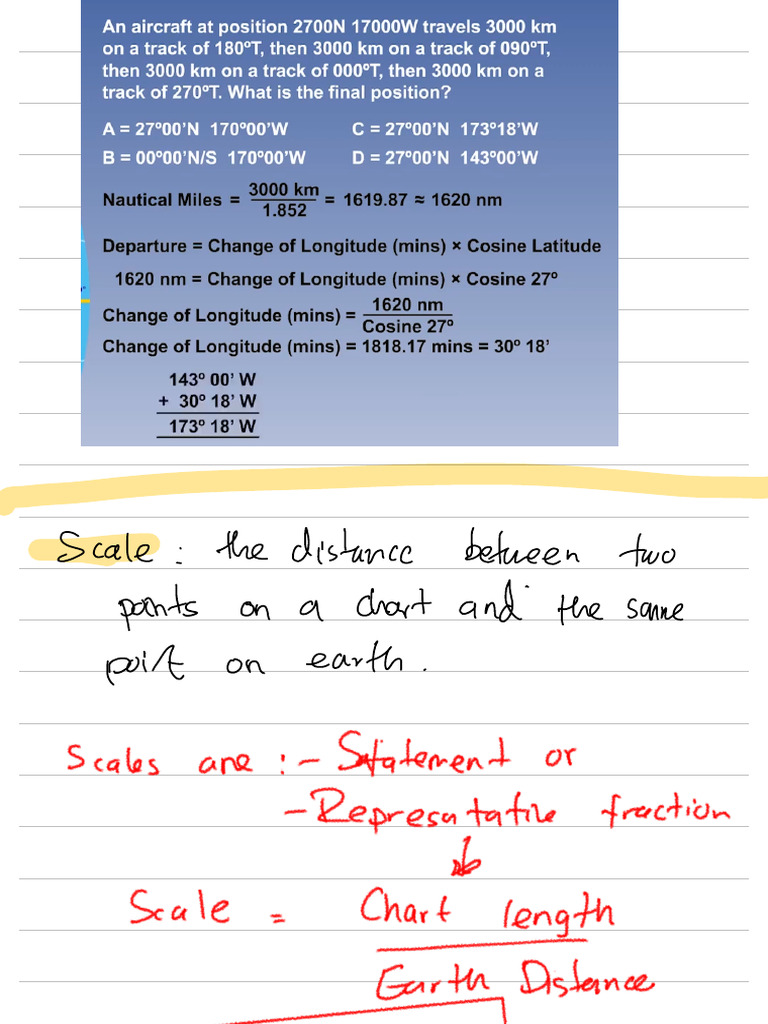 An aircraft at position 2700N 17000W travels 3000 km
on a track of 180ºT, then 3000 km on a track of 090ºT,
then 3000 km on a track of 000ºT, then 3000 km on a
track of 270ºT. What is the final position?
A = 27º00'N 170º00'W C = 27º00'N 173º18'W
B = 00º00'N/S 170º00'W D = 27º00'N 143º00'W
Nautical Miles = 3000 km / 1.852 = 1619.87 ≈ 1620 nm
Departure = Change of Longitude (mins) × Cosine Latitude
1620 nm = Change of Longitude (mins) × Cosine 27º
Change of Longitude (mins) = 1620 nm / Cosine 27º
Change of Longitude (mins) = 1818.17 mins = 30º 18'
143º 00' W
+ 30º 18' W
173º 18' W
Scale : the distance between two
points on a chart and the same
point on earth.
Scales are :- Statement or
- Represntative fraction
Scale = Chart length
Earth Distance